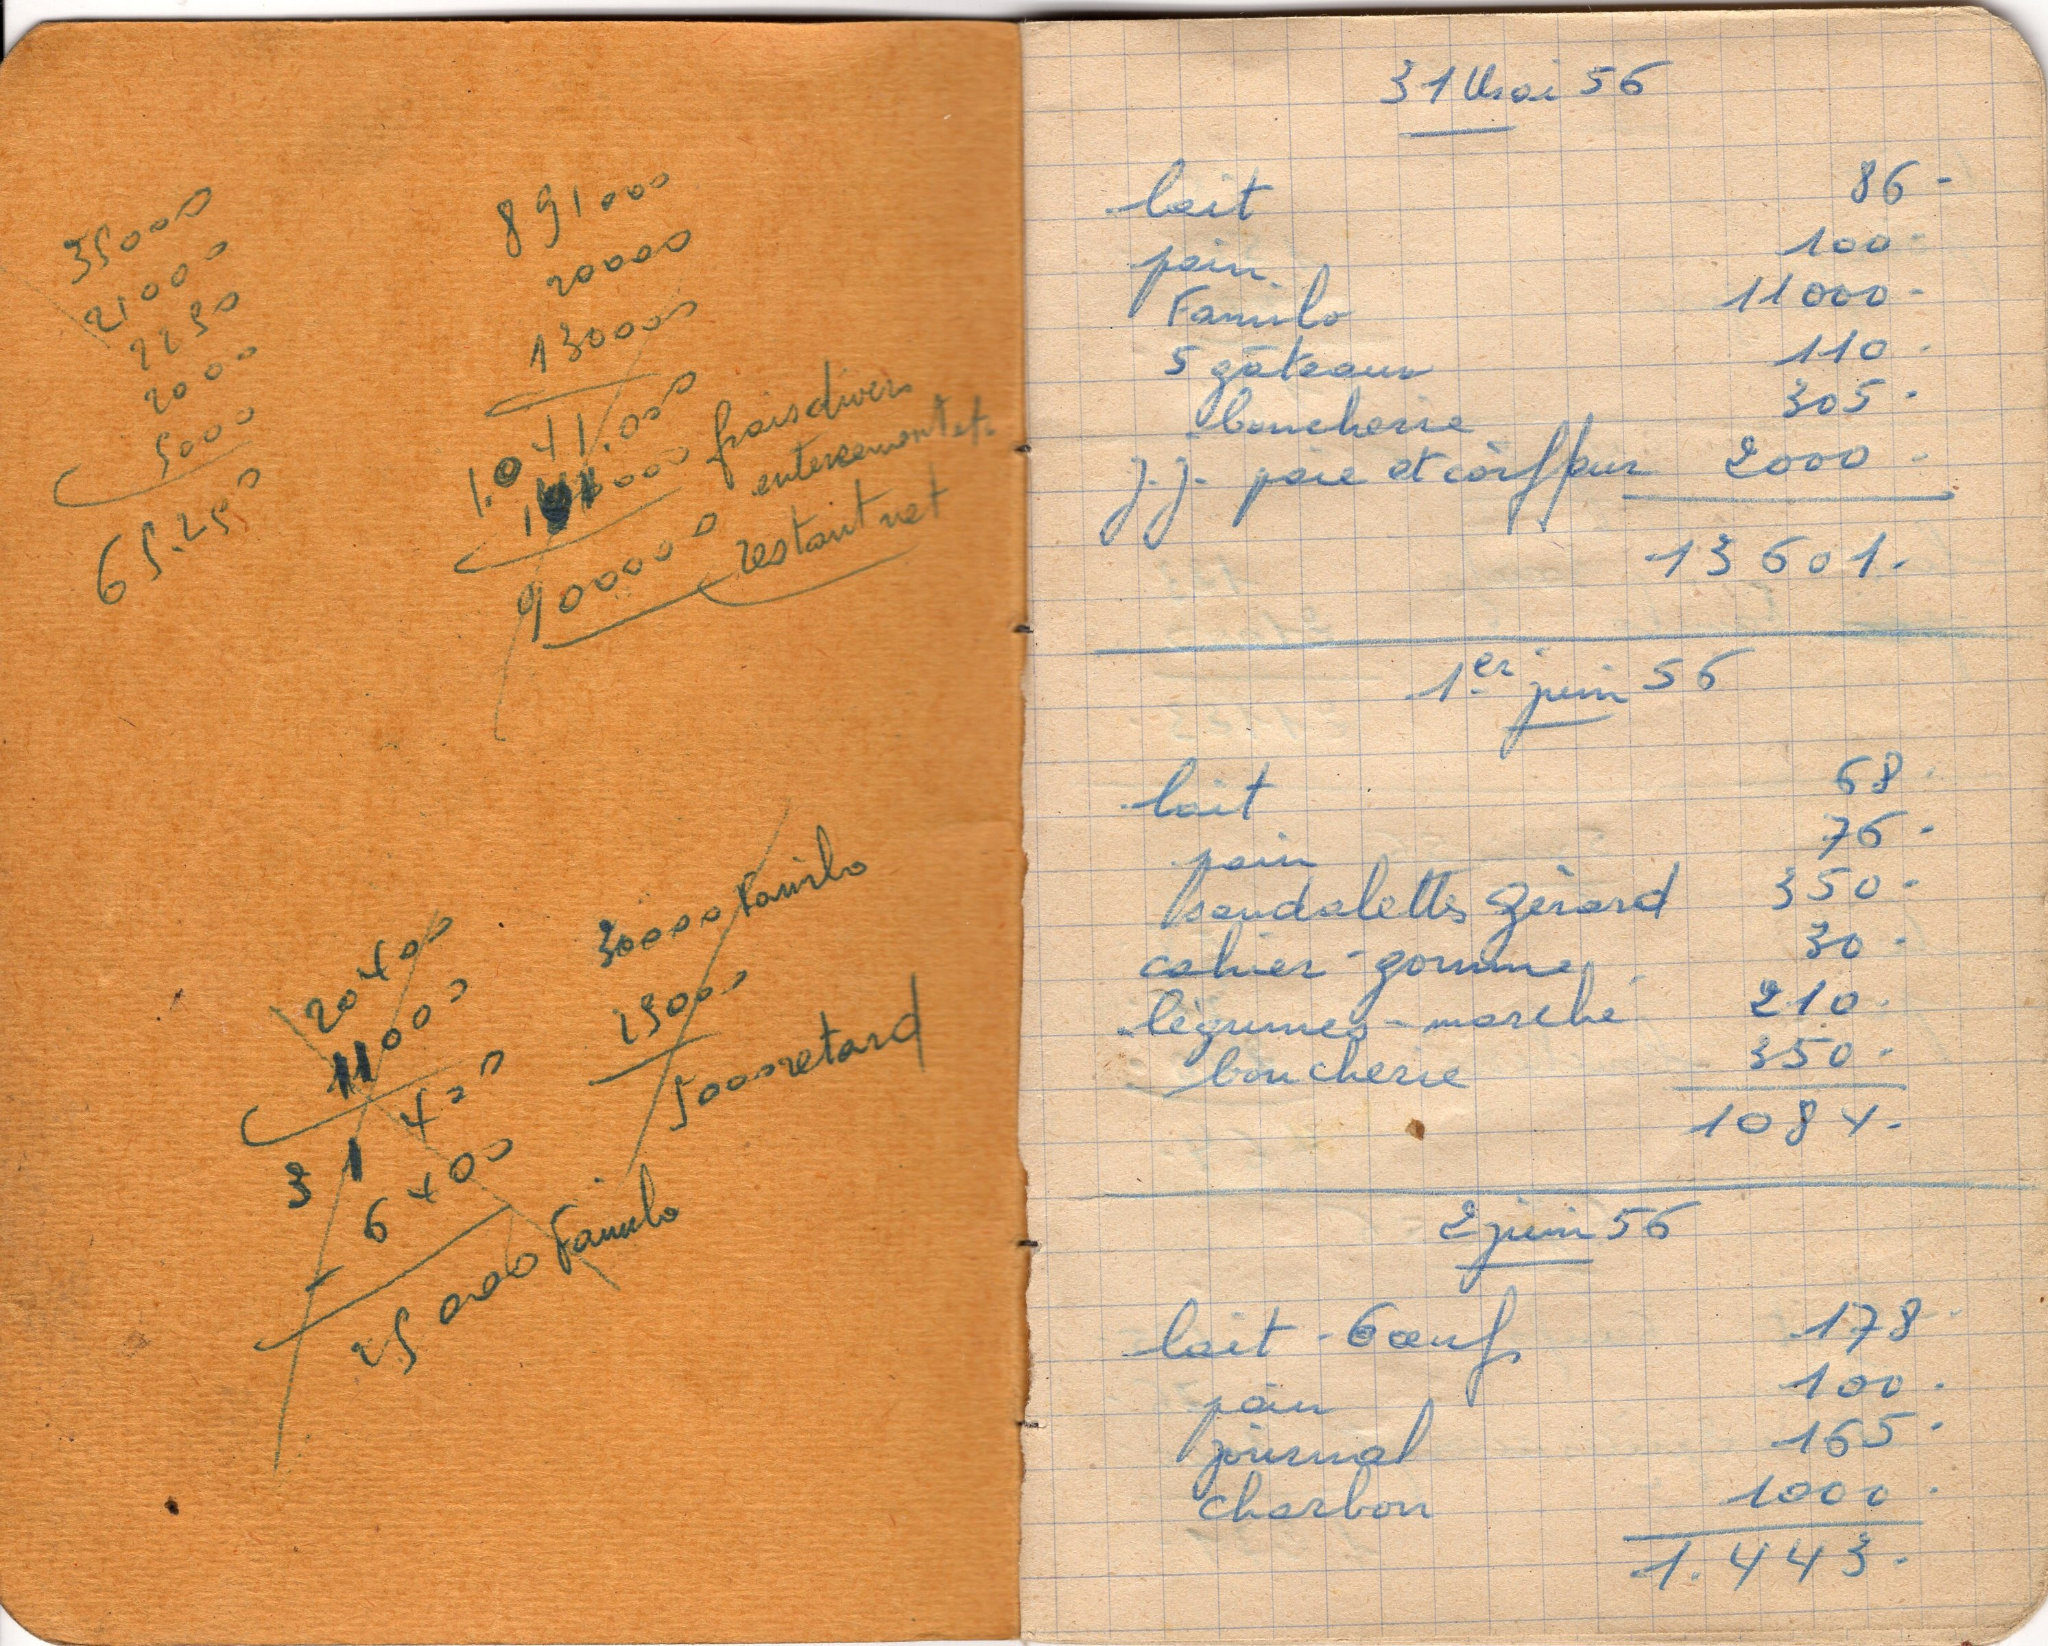 35000
21000
2250
2000
5000
65.250
891000
20000
130000
1.041.000
000 frais divers
enterrement etc
900000 restant net
20400
11000
31400
6400
25000 Familo
30000 Familo
25000
5000 retard
31 Mai 56
lait 86-
pain 100-
Familo 11000-
5 gâteaux 110-
boucherie 305-
J.J. paie et coiffeur 2000-
13601.
1er juin 56
lait 68-
pain 76-
sandalettes Gérard 350-
cahier-gomme 30-
légumes-marché 210-
boucherie 350-
1084.
2 juin 56
lait-6 œufs 178-
pain 100-
journal 165-
charbon 1000-
1.443-